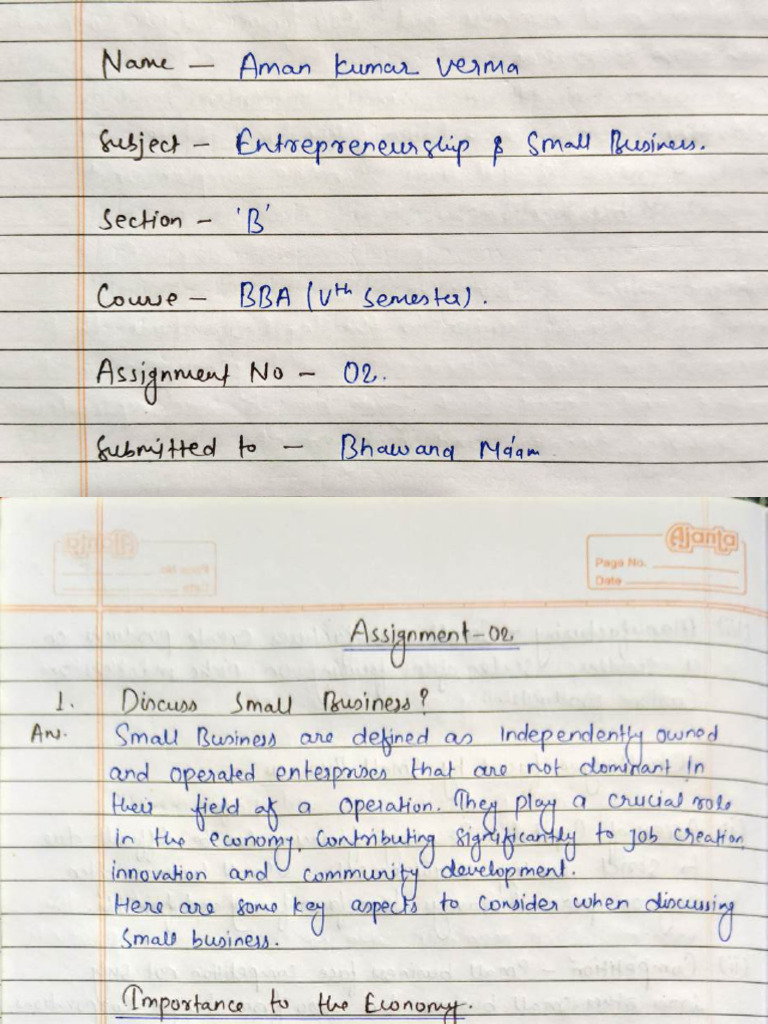 Name — Aman Kumar Verma
Subject — Entrepreneurship & Small Business.
Section — 'B'
Course — BBA (Vth Semester).
Assignment No — 02.
Submitted to — Bhawana Ma'am
Ajanta
Page No.
Date
Assignment-02
1. Discuss Small Business?
Ans. Small Business are defined as Independently owned
and operated enterprises that are not dominant In
their field of a operation. They play a crucial role
in the economy, contributing significantly to job creation,
innovation and community development.
Here are some key aspects to consider when discussing
Small business.
Importance to the Economy.